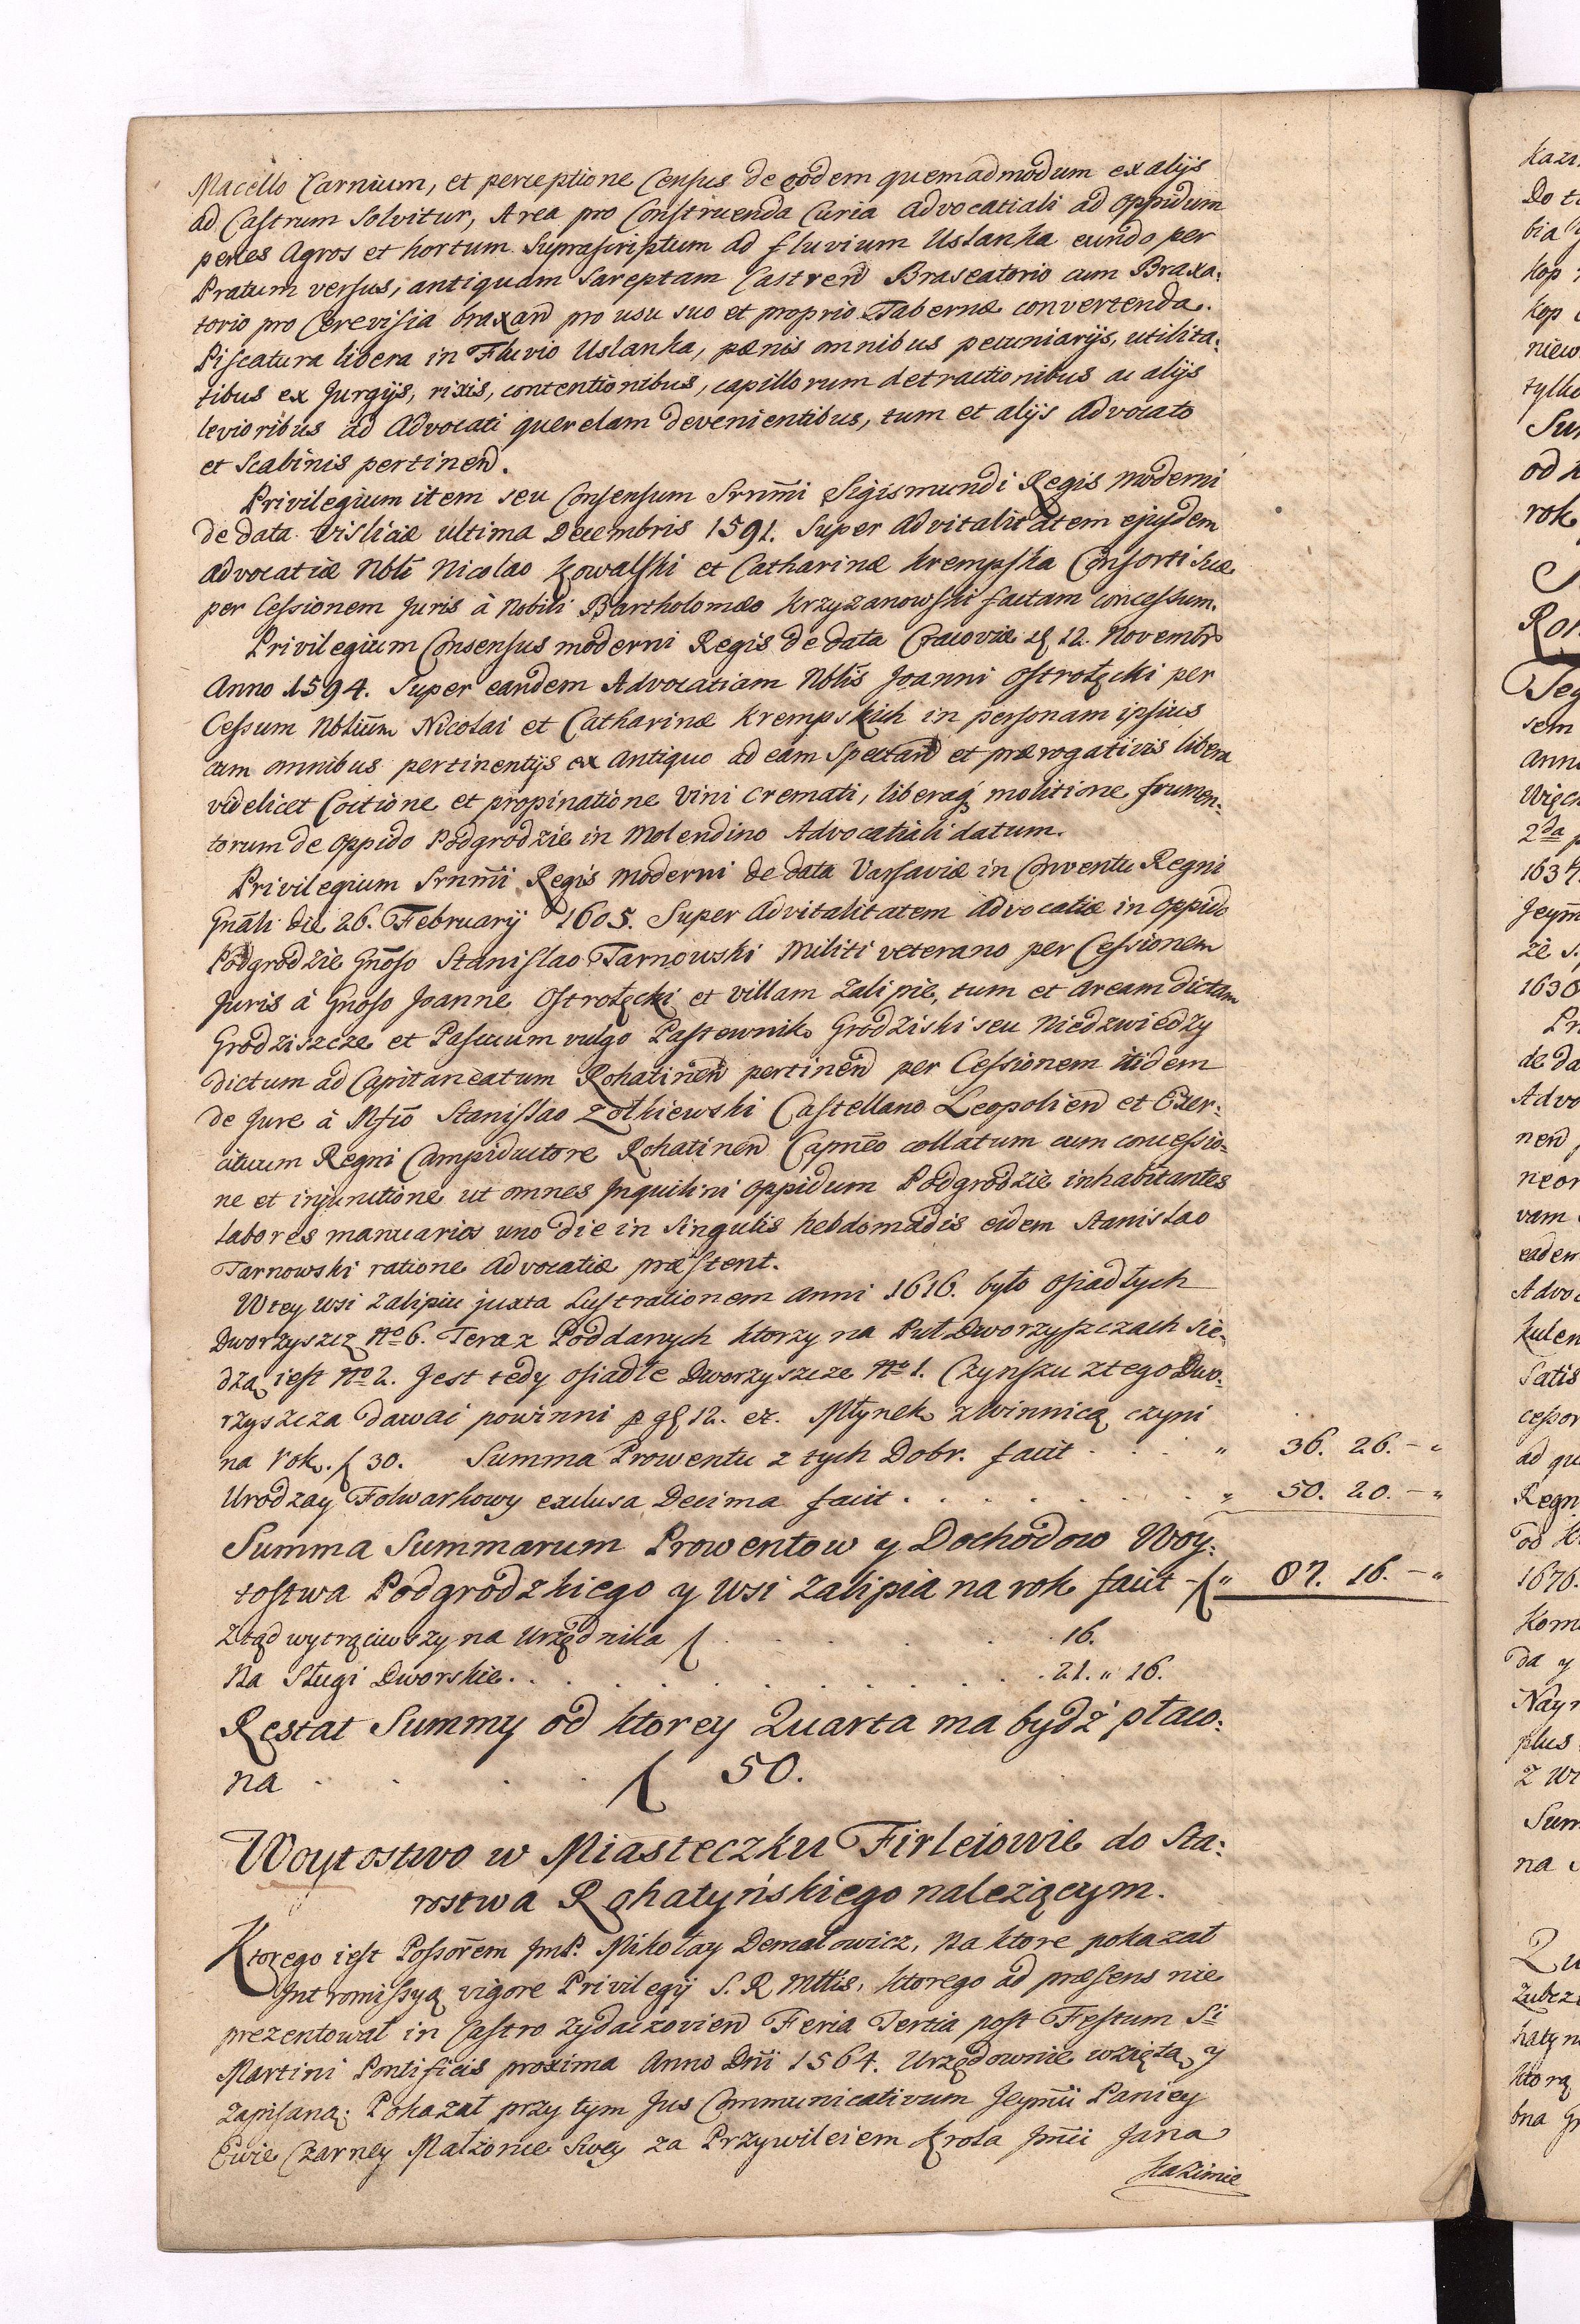 Macello Carnium, et perceptione Census de eodem quemadmodum ex alijs
ad Castrum solvitur, Area pro Construenda Curia Advocatiali ad oppidum
penes Agros et hortum suprascriptum ad fluvium Uslanka eundo per
Pratum versus, antiquam sareptam Castren Braseatorio cum Braxa:
torio pro Cerevisia braxand pro usu suo et proprio Tabernæ convertenda.
Piscatura libera in Fluvio Uslanka, pænis omnibus pecuniarijs, utilita:
tibus ex Jurgijs, rixis, contentionibus, capillorum detractionibus ac alijs
levioribus ad Advocati querelam devenientibus, tum et alijs Advocato
et Scabinis pertinen.
Privilegium item seu Consensum Srnm̄i Sigismundi Regis moderni
de data Visliciæ ultima Decembris 1591. Super advitalitatem ejusdem
advocatiæ Nbli Nicolao Kowalski et Catharinæ Krempska Consorti suæ
per Cessionem Juris à Nobili Bartholomæo Krzyzanowski factam concessum.
Privilegium Consensus moderni Regis de data Cracoviæ 12. Novembr
Anno 1594. Super eandem Advocatiam Nblis Joanni Ostrołęcki per
Cessum Nblium Nicolai et Catharinæ Krempskich in personam ipsius
cum omnibus pertinentijs ex Antiquo ad eam spectan et prærogativis libera
videlicet Coctione et propinatione Vini cremati, liberaq molitione frumen:
torum de oppido Podgrodzie in Molendino Advocatiali datum.
Privilegium Srnm̄i Regis moderni de data Varsaviæ in Conventu Regni
Gnāli die 26. February 1605. Super Advitalitatem Advocatiæ in oppido
Podgrodzie Gnōso Stanislao Tarnowski militi veterano per Cessionem
Juris à Gnoso Joanne Ostrołęcki et villam Zalipie, tum et aream dictam
Grodziszcze et Pascuum vulgo Pastewnik Grodziski seu Niedzwiedzy
dictum ad Capitaneatum Rohatinen pertinen per Cessionem itidem
de Jure à Mfco Stanislao Zołkiewski Castellano Leopolien et Exer:
cituum Regni Campiductore Rohatinen Capnēo collatum cum concessio:
ne et injunctione ut omnes Inquilini oppidum Podgrodzie inhabitantes
labores manuarios uno die in singulis hebdomadis eidem Stanislao
Tarnowski ratione Advocatiæ præstent.
W tey wsi Zalipiu juxta Lustrationem anni 1616. było osiadłych
Dworzyszcz No 6. Teraz Poddanych ktorzy na Puł Dworzyszczach sie:
dzą iest No 2. Jest tedy osiadłe Dworzyszcze No 1. Czynszu z tego Dwo:
rzyszcza dawać powinni p 12. Młynek z winnicą czyni
na rok. f 30. Summa Prowentu z tych Dobr. facit . . . " 36. 26. – "
Urodzay Folwarkowy exclusa Decima facit . . . . " 50. 20. – "
Summa Summarum Prowentow y Dochodow Woy:
tostwa Podgrodzkiego y wsi Zalipia na rok facit – f " 87. 16. – "
Ztąd wytrąciwszy na Urzędnika f . . . . 16.
Na Sługi Dworskie . . . . 21. " 16.
Restat Summy od ktorey Quarta ma bydź płaco:
na . . . f 50.
Woytostwo w Miasteczku Firleiowie do Sta:
rostwa Rohatyńskiego należącym.
Ktorego iest Possorem JmP. Mikołay Demałowicz, na ktore pokazał
Intromissyą vigore Privilegij S. R Mttis, ktorego ad præsens nie
prezentował in Castro Zydaczovien Feria Tertia post Festum Si
Martini Pontificis proxima Anno Dni 1564. Urzędownie wziętą y
zapisaną: Pokazał przy tym Jus Communicativum Jeymci Paniey
Ewie Czarney Małżonce swey za Przywileiem Krola Jmci Jana
Kazimie